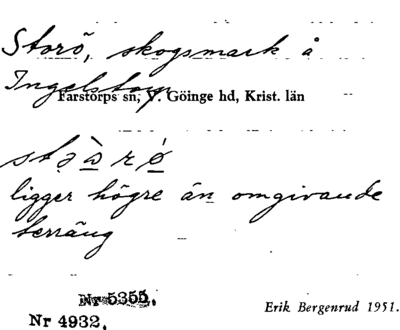 Storö, skogsmark å
Ingelstorp
Farstorps sn, V. Göinge hd, Krist. län
ligger högre än omgivande
terräng
Nr 5355.
Nr 4932.
Erik Bergenrud 1951.